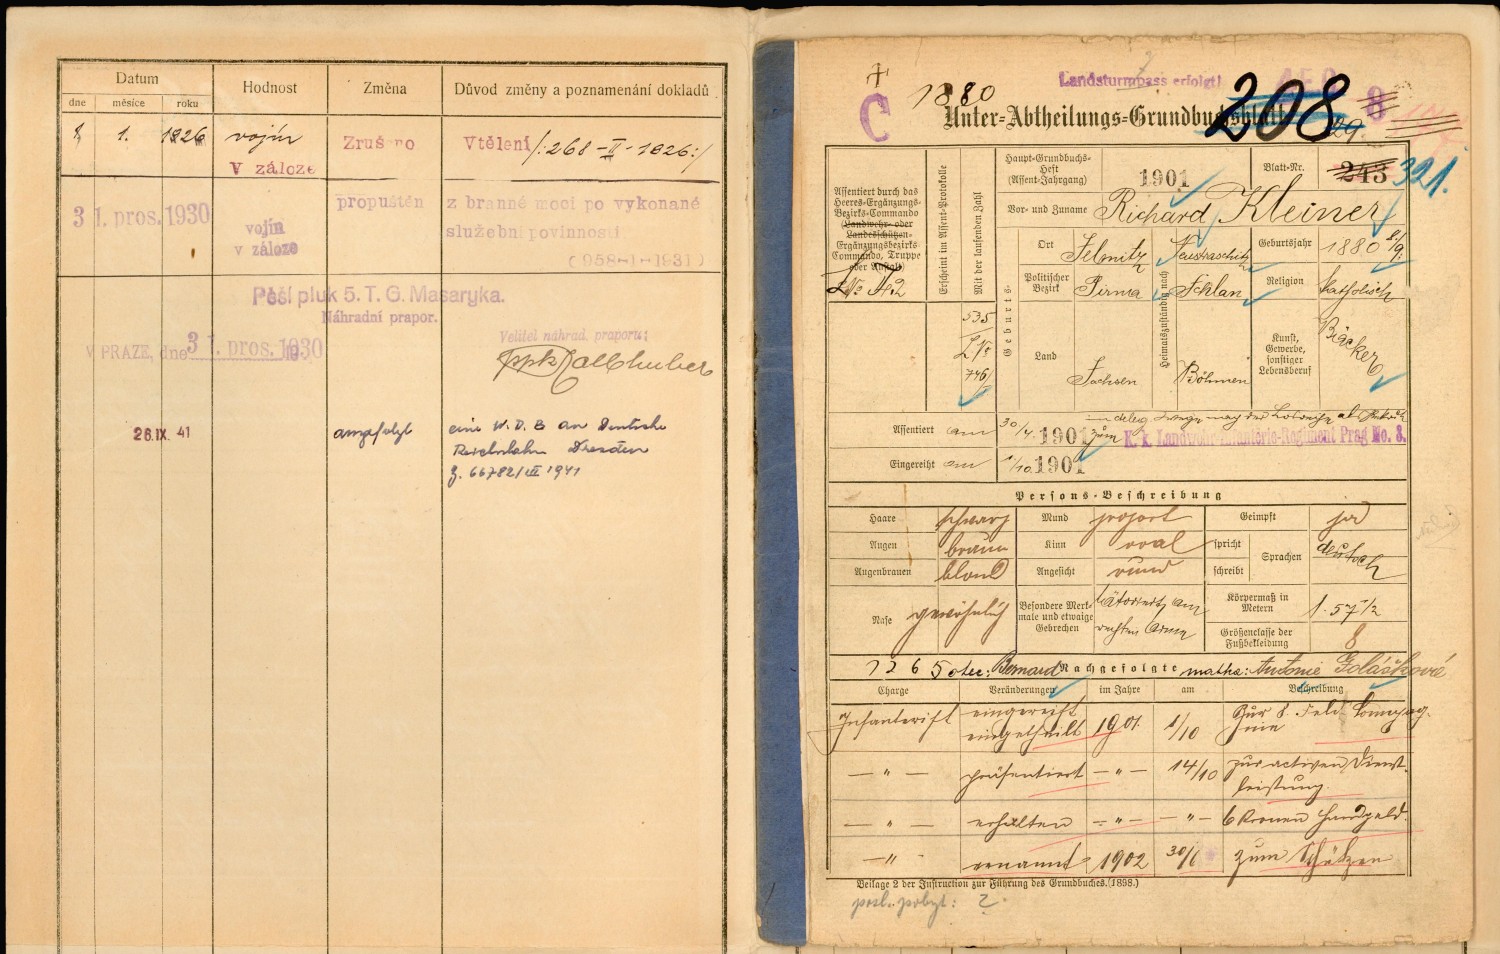 Datum
Hodnost
Změna
Důvod změny a poznamenání dokladů
dne měsíce roku
8 1. 1926 vojín Zrušeno Vtělení /:268-II-1926:/
V záloze
31. pros. 1930 propuštěn z branné moci po vykonané
vojín službení povinnosti
v záloze (958-I-1931)
Pěší pluk 5. T. G. Masaryka.
Náhradní prapor.
V PRAZE, dne 31. pros. 1930
Velitel náhrad. praporu:
26. IX. 41 ausgefolgt eine W.D.B an Deutsche
Reichsbahn Dresden
Z. 66782/III 1941
1880
Landsturmpass erfolgt!
C
Unter-Abtheilungs-Grundbuchsblatt
208
29
8
Assentiert durch das
Heeres-Ergänzungs-
Bezirks-Commando
(Landwehr- oder
Landesschützen-
Ergänzungsbezirks
Commando, Truppe
oder Anstalt)
Erscheint im Assent-Protokolle
Mit der laufenden Zahl
535
746
Haupt-Grundbuchs-
Heft
(Assent-Jahrgang)
1901
Blatt-Nr.
243
321.
Vor- und Zuname Richard Kleiner
Geburts-
Ort
Politischer
Bezirk Pirna
Land Sachsen
Heimatszuständig nach
Neustraschitz
Schlan
Böhmen
Geburtsjahr 1880 8/9.
Religion katholisch
Kunst,
Gewerbe,
sonstiger
Lebensberuf
Bäcker
Assentiert am 30/4. 1901 zum K. k. Landwehr-Infanterie-Regiment Prag No. 8.
Eingereiht am 1/10. 1901
Persons-Beschreibung
Haare schwarz Mund proport Geimpft ja
Augen braun Kinn oval spricht Sprachen deutsch
Augenbrauen blond Angesicht rund schreibt
Nase gewöhnlich
Besondere Merk-
male und etwaige
Gebrechen
tätowiert am
rechten Arme
Körpermaß in
Metern
1.57 1/2
Größenclasse der
Fußbekleidung
8
1265 otec: Bernard Nachgefolgte matka: Antonie Golášková
Charge Veränderungen im Jahre am Beschreibung
Infanterist eingereiht
eingetheilt 1901 1/10 Zur 8. Feld Compag-
nie
— " — präsentiert — " — 14/10 zur activen Dienst-
leistung.
— " — erhalten — " — — " — 6 Kronen Handgeld.
— " — ernannt 1902 30/6 zum Schützen
Beilage 2 der Instruction zur Führung des Grundbuches. (1898.)
posl. pobyt: ?